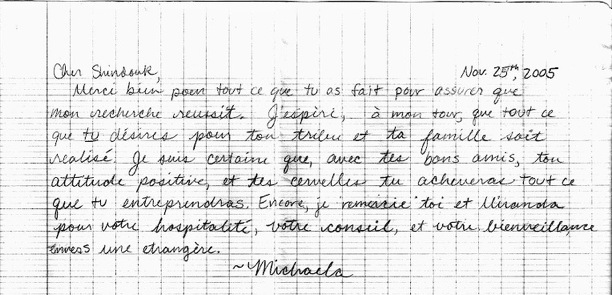 Cher Shindouk, Nov. 25th, 2005
Merci bien pour tout ce que tu as fait pour assurer que
mon recherche reussit. J'espère, à mon tour, que tout ce
que tu désires pour ton tribu et ta famille soit
realisé. Je suis certaine que, avec tes bons amis, ton
attitude positive, et tes cervelles tu acheveras tout ce
que tu entreprendras. Encore, je remercie toi et Miranda
pour votre hospitalité, votre conseil, et votre bienveillance
envers une etrangère.
~Michaela